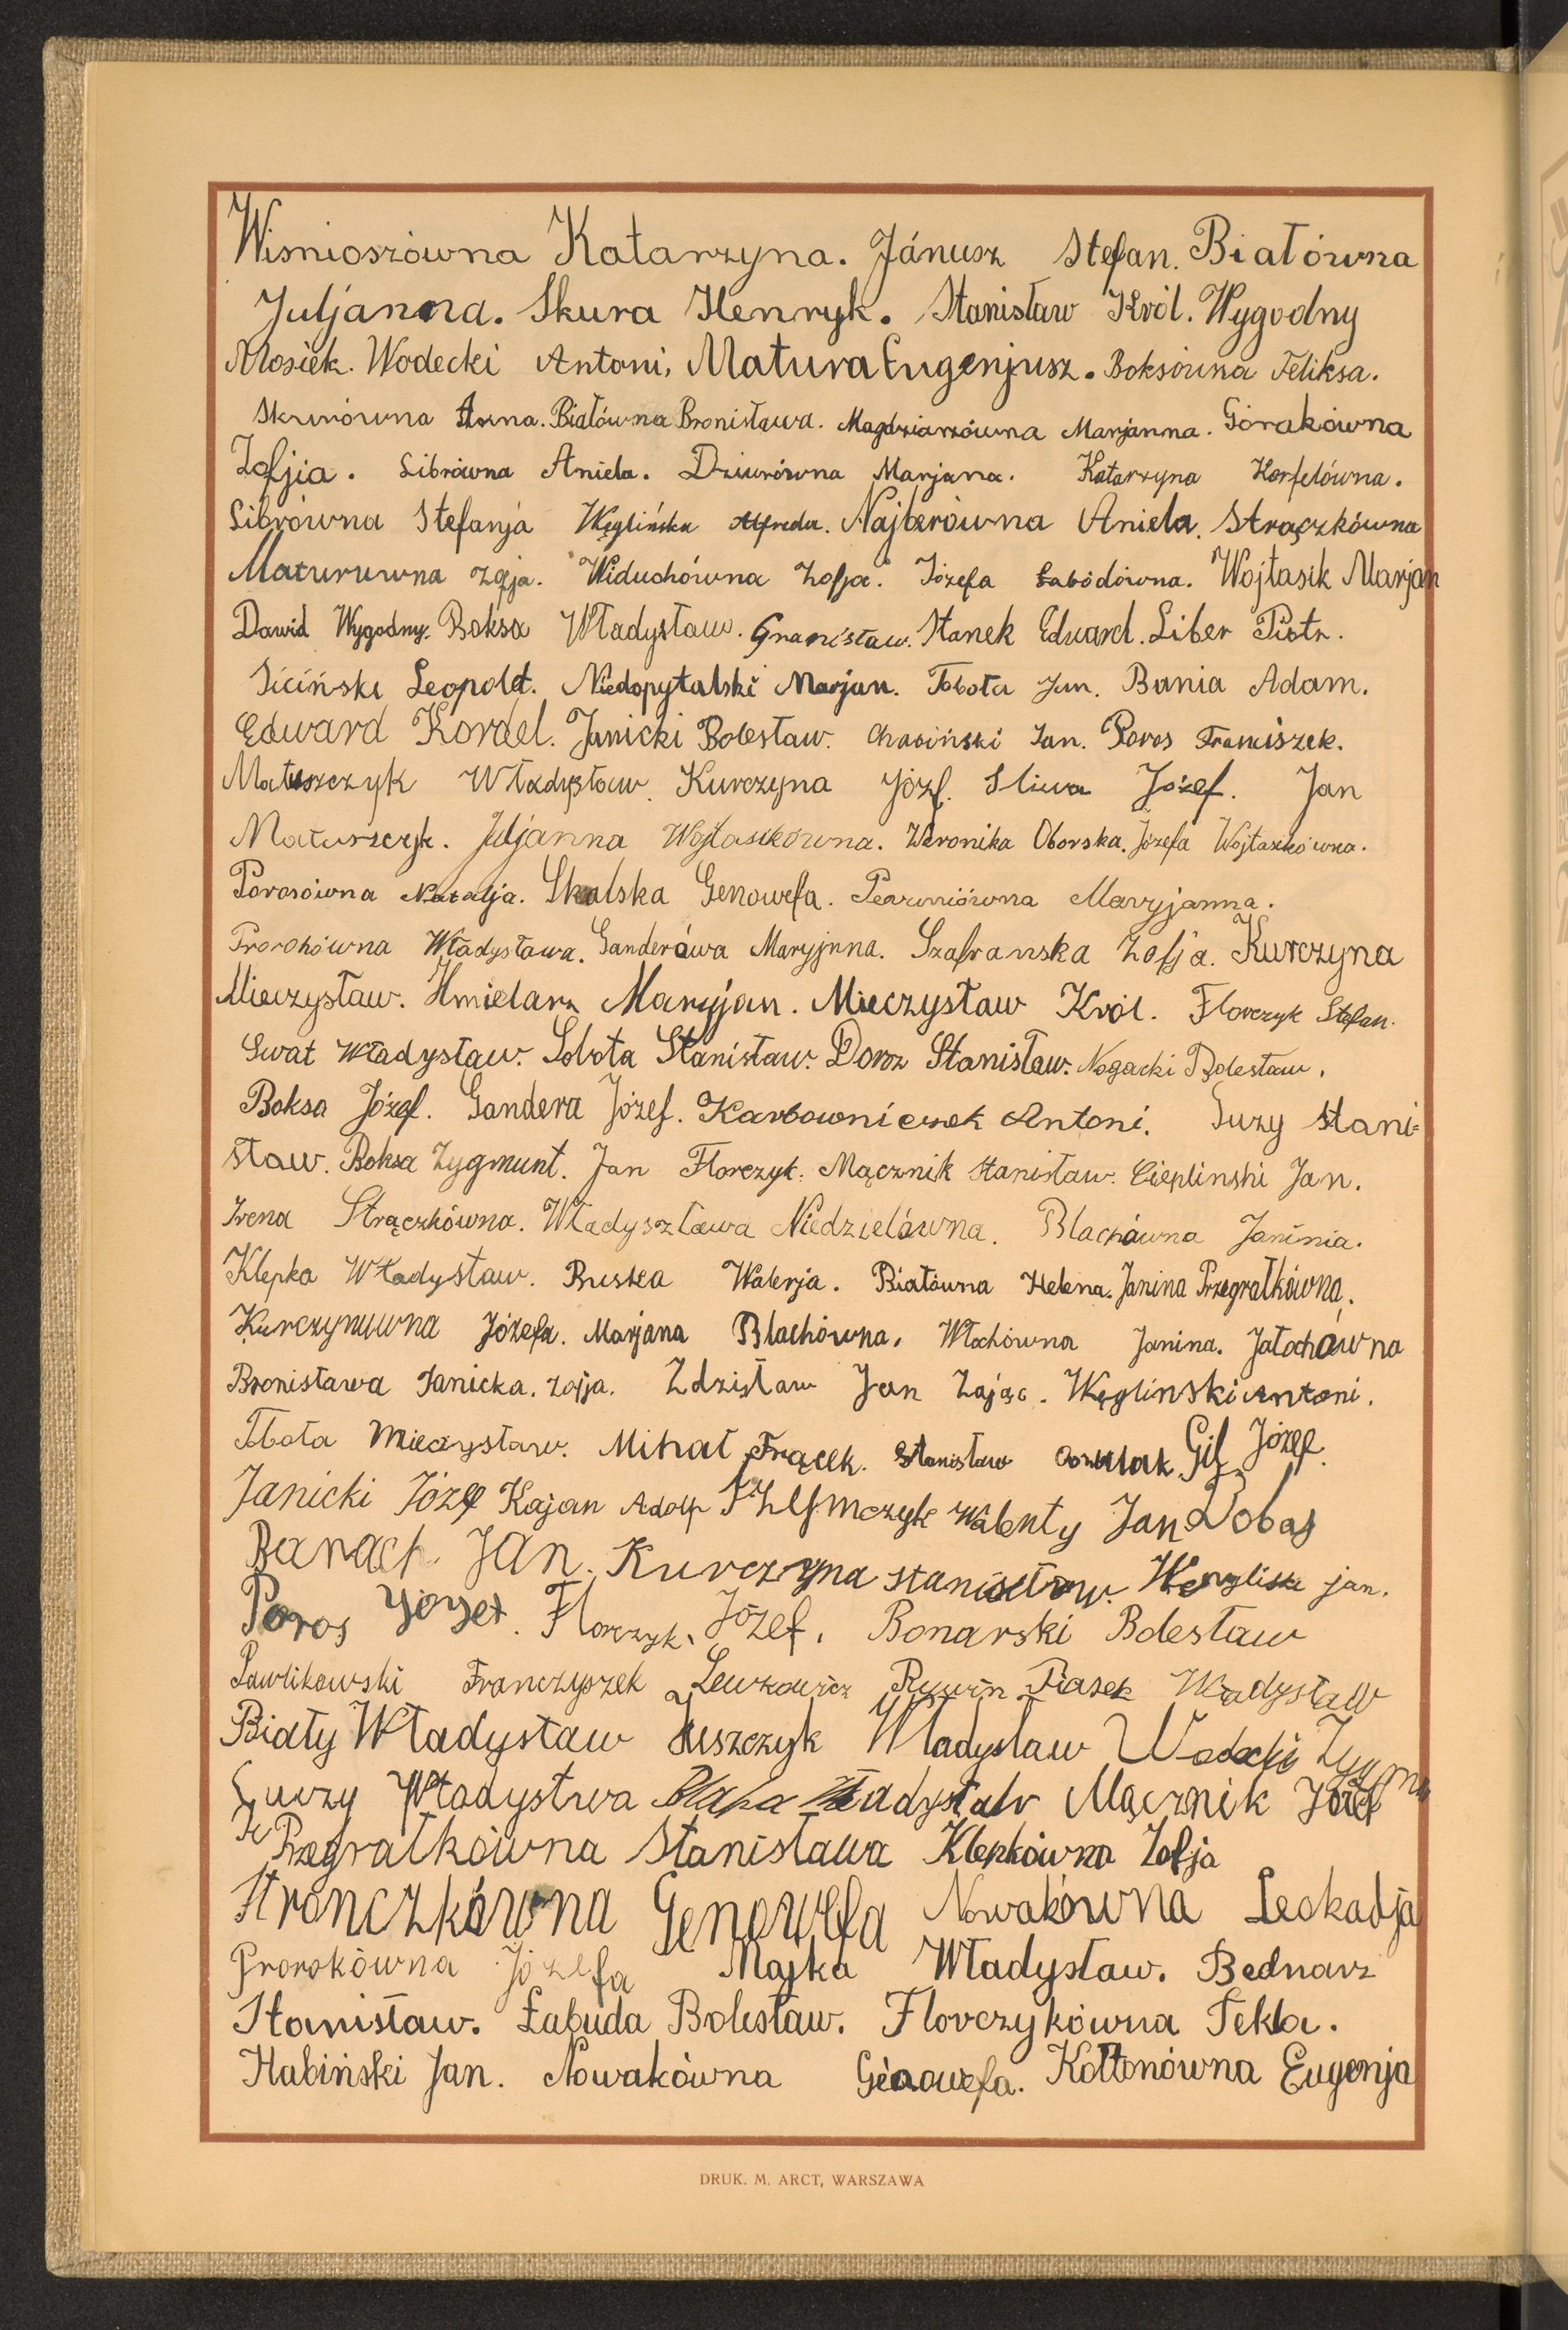 Wisnioszówna Katarzyna. Jánusz Stefan. Białówna
Juljanna. Skura Henryk. Stanisław Król. Wygodny
Mosiek. Wodecki Antoni, Matura Eugenjusz. Boksówna Feliksa.
Skurówna Anna. Białówna Bronisława. Magdziarzówna Marjanna. Górakówna
Zofjia. Librówna Aniela. Dziurówna Marjana. Katarzyna Korfelówna.
Librówna Stefanja Węglińska Alfreda. Najberówna Aniela. Strączkówna
Maturuwna Zofja. Widuchówna Zofja. Józefa Łabòdówna. Wojtasik Marjan
Dawid Wygodny. Boksa Władysław. Stanek Edward. Liber Piotr.
Siciński Leopold. Niedopytalski Marjan. Tobota Jan. Bania Adam.
Edward Kordel. Janicki Bolesław. Chabiński Jan. Poros Franciszek.
Matuszczyk Władysław. Kurczyna Józf. Sliwa Józef. Jan
Maturszczyk. Juljanna Wojtasikówna. Weronika Oborska. Józefa Wojtasikówna.
Porosówna Natalja. Skalska Genowefa. Maryjanna.
Prorokówna Władysława. Ganderówa Maryjnna. Szafranska Zofja. Kurczyna
Mieczysław. Hmielarz Maryjan. Mieczysław Król. Florczyk Stefan.
Swat Władysław. Sobota Stanisław. Doroz Stanisław. Nogacki Bolesław.
Boksa Józef. Gandera Józef. Karbowniczek Antoni. Guzy Stani=
sław. Boksa Zygmunt. Jan Florczyk. Mącznik Stanisław. Cieplinski Jan.
Irena Strączkówna. Władyszława Niedzielówna. Blachówna Janinia.
Klepka Władysław. Buszka Walerja. Białówna Helena. Janina Przegrałkówna.
Kurczynuwna Józefa. Marjana Blachówna. Włochówna Janina. Jałochówna
Bronisława Janicka. Zofja. Zdzisław Jan Zając. Węglinski Antoni.
Tobota Mieczysław. Mihał Frącek. Stanisław Gil Józef.
Janicki Józef Kajan Adolf Walenty Jan Dobaj
Banach Jan. Kurczyna Stanisław. Jan.
Poros Józef. Florczyk. Józef. Bonarski Bolesław
Pawlikowski Franczyszek Lewkowicz Rywin Piasek Władysław
Biały Władysław Juszczyk Władysław Wodecki
Guzy Władysłwa Blaha Władysław Mącznik Józef
Przegrałkówna Stanisława Klepkówna Zofja
Stronczkówna Genowefa Nowakówna Leokadja
Prorokówna Józefa Majka Władysław. Bednarz
Stanisław. Łabuda Bolesław. Florczykówna Tekla.
Habiński Jan. Nowakówna Genowefa. Kołtonówna Eugenja
DRUK. M. ARCT, WARSZAWA